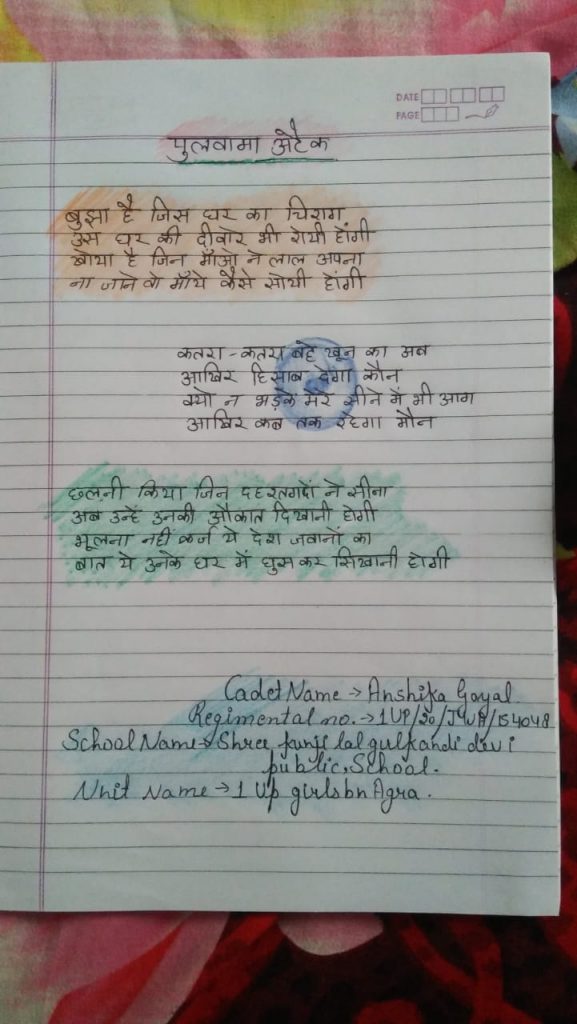 DATE
PAGE
पुलवामा अटैक
बुझा है जिस घर का चिराग
उस घर की दीवारे भी रोयी होंगी
खोया है जिन माँओ ने लाल अपना
ना जाने वो माँये कैसे सोयी होंगी
कतरा - कतरा बहे खून का अब
आखिर हिसाब देगा कौन
क्यो न भड़के मेरे सीने में भी आग
आखिर कब तक रहेगा मौन
छलनी किया जिन दहशतगर्दो ने सीना
अब उन्हें उनकी औकात दिखानी होगी
भूलना नहीं कर्ज ये देश जवानों का
बात ये उनके घर में घुस कर सिखानी होगी
Cadet Name → Anshika Goyal
Regimental no. → 1UP/20/JWA/154048
School Name → Shree Junji lal gulkandi devi
public School.
Unit Name → 1 Up girls bn Agra.